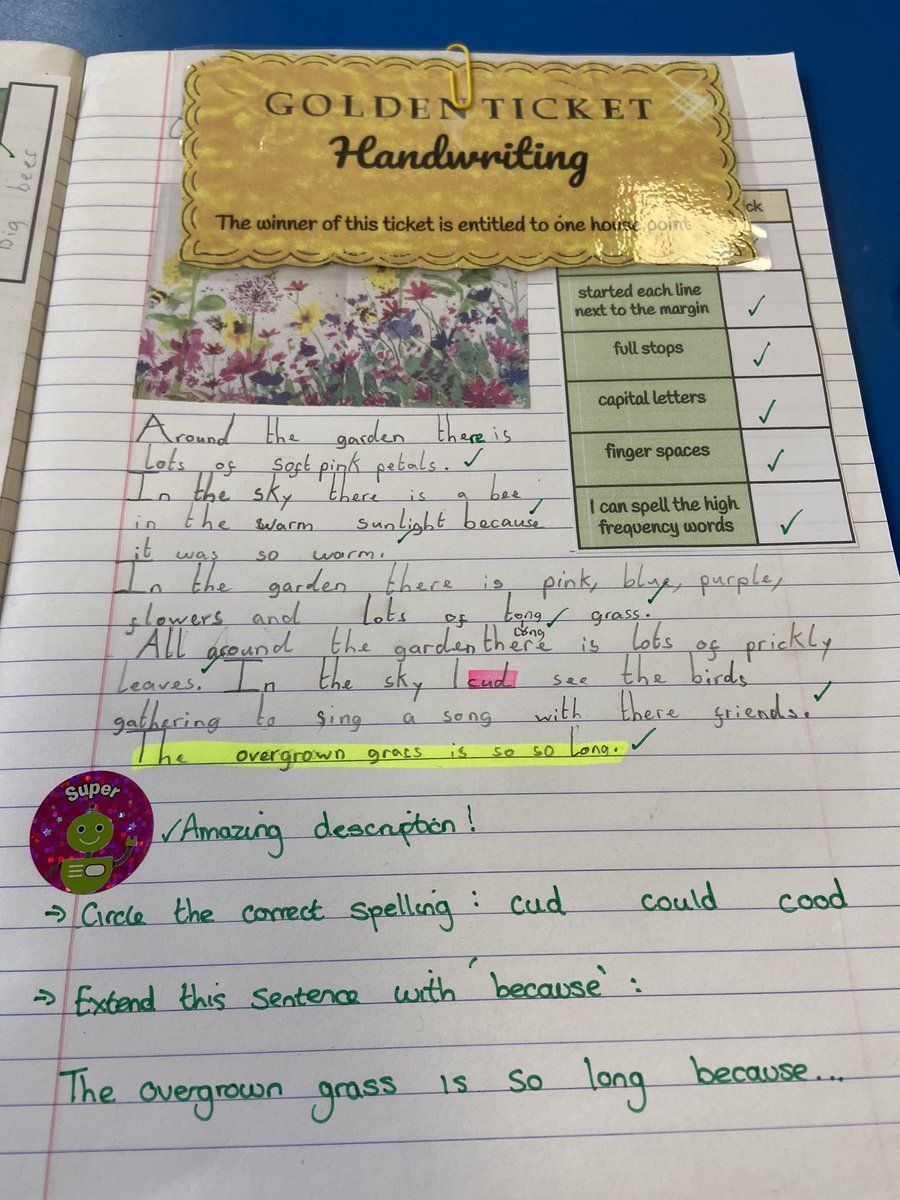 Big bees
GOLDEN TICKET
Handwriting
The winner of this ticket is entitled to one house point
ck
started each line
next to the margin
full stops
capital letters
finger spaces
I can spell the high
frequency words
Around the garden there is
lots of soft pink petals.
In the sky there is a bee
in the warm sunlight because
it was so warm.
In the garden there is pink, blue, purple,
flowers and lots of tong grass.
long
All around the garden there is lots of prickly
leaves. In the sky I cud see the birds
gathering to sing a song with there friends.
The overgrown grass is so so long.
Super
Amazing description!
→ Circle the correct spelling : cud could cood
→ Extend this sentence with 'because' :
The overgrown grass is so long because...